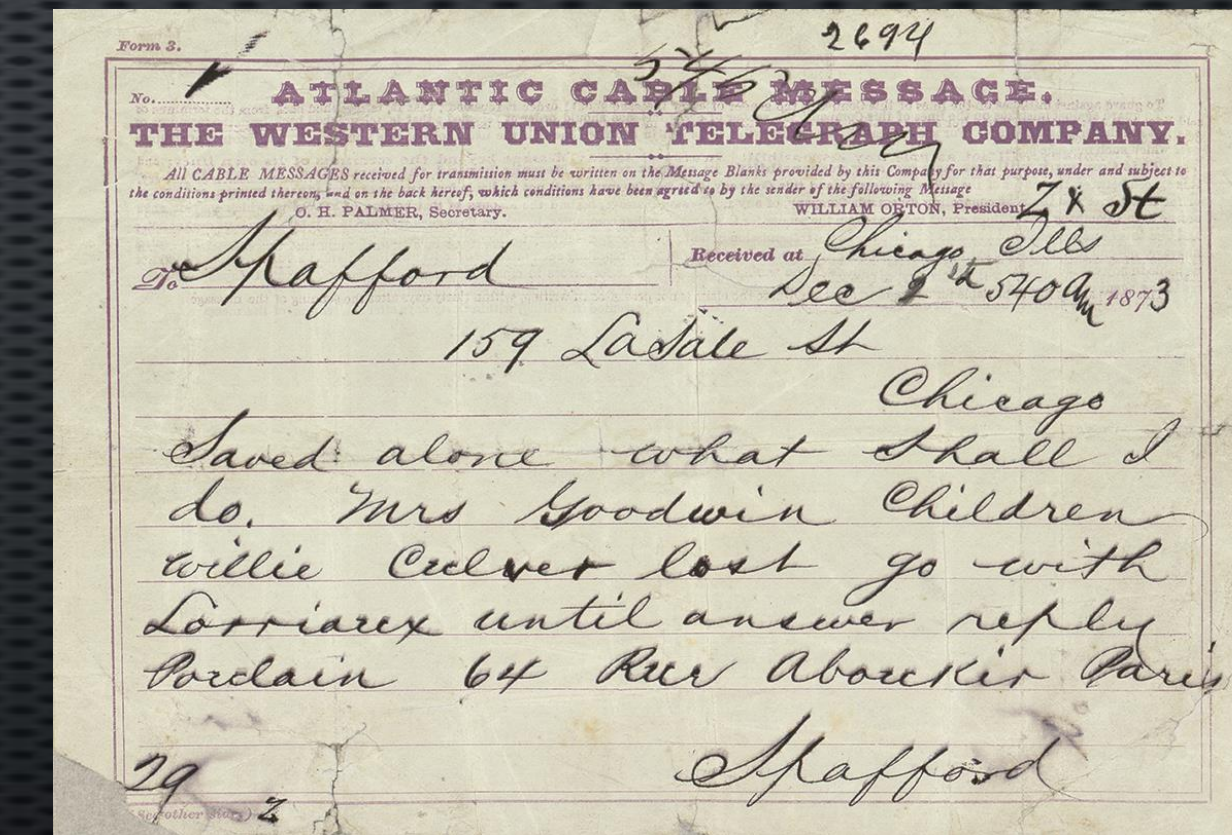 Form 3.
2694
No.
ATLANTIC CABLE MESSAGE.
THE WESTERN UNION TELEGRAPH COMPANY.
All CABLE MESSAGES received for transmission must be written on the Message Blanks provided by this Company for that purpose, under and subject to
the conditions printed thereon, and on the back hereof, which conditions have been agreed to by the sender of the following Message
O. H. PALMER, Secretary. WILLIAM ORTON, President
To Spafford
Received at Chicago Ills
Dec 2 540 am 1873
159 LaSale St
Chicago
Saved alone what shall I
do. Mrs Goodwin Children
Willie Culver lost go with
Lorriaux until answer reply
Porclain 64 Rue Aboukir Paris
Spafford
29
2
(See other side.)